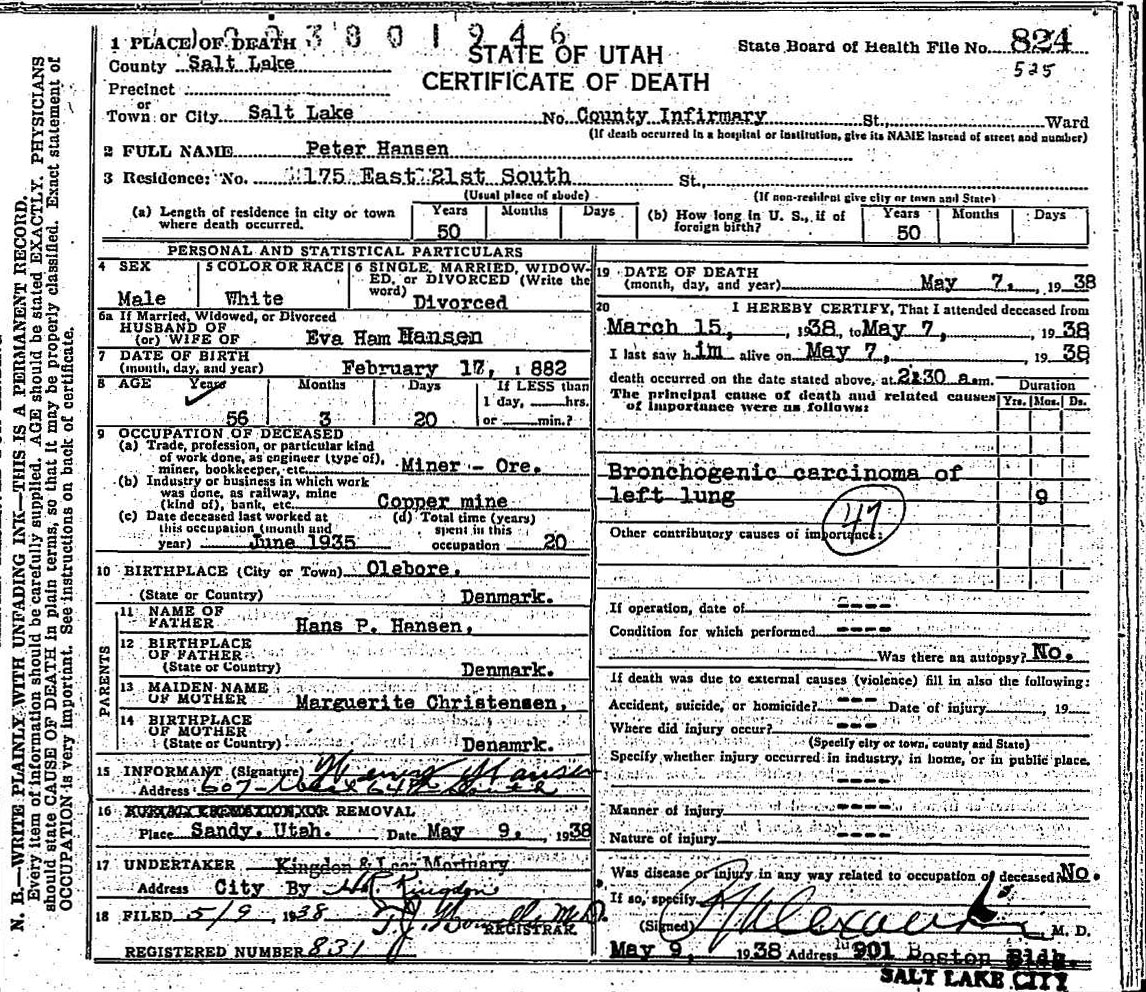 1003801946
1 PLACE OF DEATH
County Salt Lake
Precinct
or
Town or City Salt Lake No County Infirmary St., Ward
(If death occurred in a hospital or institution, give its NAME instead of street and number)
STATE OF UTAH
CERTIFICATE OF DEATH
State Board of Health File No. 824
525
2 FULL NAME Peter Hansen
3 Residence: No. 175 East 21st South St.,
(Usual place of abode) (If non-resident give city or town and State)
(a) Length of residence in city or town where death occurred. Years Months Days
50
(b) How long in U. S., if of foreign birth? Years Months Days
50
PERSONAL AND STATISTICAL PARTICULARS
4 SEX 5 COLOR OR RACE 6 SINGLE, MARRIED, WIDOW-
ED, or DIVORCED (Write the
word)
Male White Divorced
6a If Married, Widowed, or Divorced
HUSBAND OF
(or) WIFE OF Eva Ham Hansen
7 DATE OF BIRTH
(month, day, and year) February 17, 1882
8 AGE Years Months Days If LESS than
1 day, hrs.
56 3 20 or min.?
9 OCCUPATION OF DECEASED
(a) Trade, profession, or particular kind
of work done, as engineer (type of),
miner, bookkeeper, etc. Miner - Ore.
(b) Industry or business in which work
was done, as railway, mine
(kind of), bank, etc. Copper mine
(c) Date deceased last worked at
this occupation (month and
year) June 1935
(d) Total time (years)
spent in this
occupation 20
10 BIRTHPLACE (City or Town) Olebore,
(State or Country) Denmark.
PARENTS
11 NAME OF
FATHER Hans P. Hansen,
12 BIRTHPLACE
OF FATHER
(State or Country) Denmark.
13 MAIDEN NAME
OF MOTHER Marguerite Christensen,
14 BIRTHPLACE
OF MOTHER
(State or Country) Denamrk.
15 INFORMANT (Signature) Henry Hansen
Address 607-West 64th South
16 BURIAL, CREMATION, OR REMOVAL
Place Sandy, Utah. Date May 9, 1938
17 UNDERTAKER Kingdon & Lee Mortuary
Address City By H.R. Kingdon
18 FILED 5/9 1938
REGISTRAR
REGISTERED NUMBER 831
19 DATE OF DEATH
(month, day, and year) May 7, 1938
20 I HEREBY CERTIFY, That I attended deceased from
March 15, 1938, to May 7, 1938
I last saw him alive on May 7, 1938
death occurred on the date stated above, at 2:30 a.m.
The principal cause of death and related causes
of importance were as follows:
Duration
Yrs. Mos. Ds.
Bronchogenic carcinoma of
left lung 9
47
Other contributory causes of importance:
If operation, date of ----
Condition for which performed ----
Was there an autopsy? No.
If death was due to external causes (violence) fill in also the following:
Accident, suicide, or homicide? --- Date of injury , 19
Where did injury occur? ---
(Specify city or town, county and State)
Specify whether injury occurred in industry, in home, or in public place.
----
Manner of injury ----
Nature of injury ----
Was disease or injury in any way related to occupation of deceased? No.
If so, specify
(Signed) Alexander M. D.
May 9, 1938 Address 901 Boston Bldg.
SALT LAKE CITY
N. B.—WRITE PLAINLY, WITH UNFADING INK—THIS IS A PERMANENT RECORD.
Every item of information should be carefully supplied. AGE should be stated EXACTLY. PHYSICIANS
should state CAUSE OF DEATH in plain terms, so that it may be properly classified. Exact statement of
OCCUPATION is very important. See instructions on back of certificate.